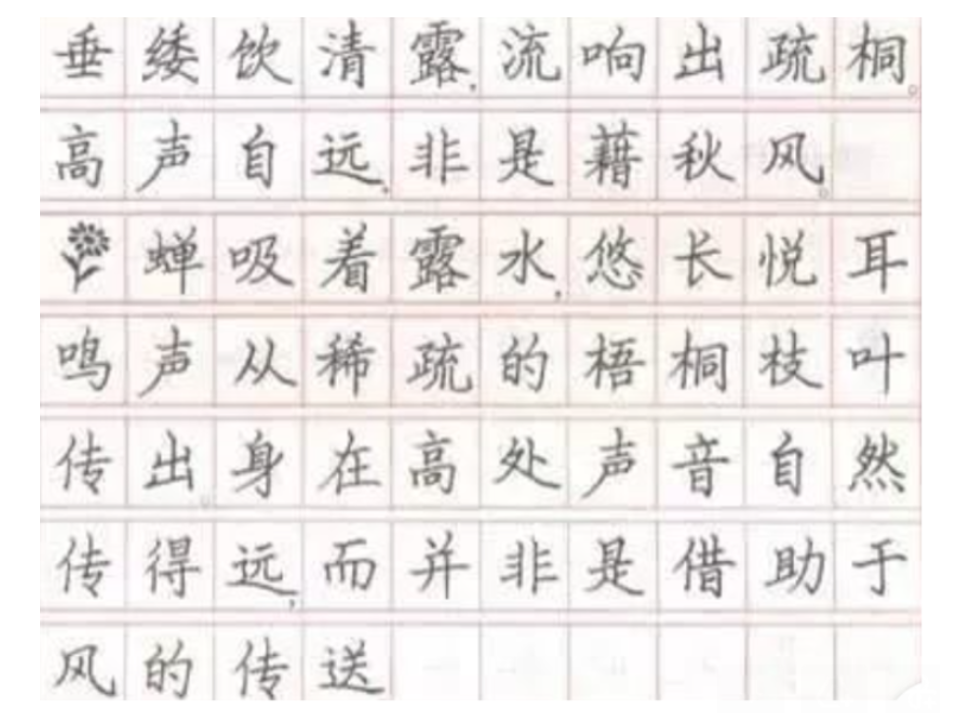 垂緌饮清露，流响出疏桐。
高声自远，非是藉秋风。
蝉吸着露水，悠长悦耳
鸣声从稀疏的梧桐枝叶
传出。身在高处声音自然
传得远，而并非是借助于
风的传送